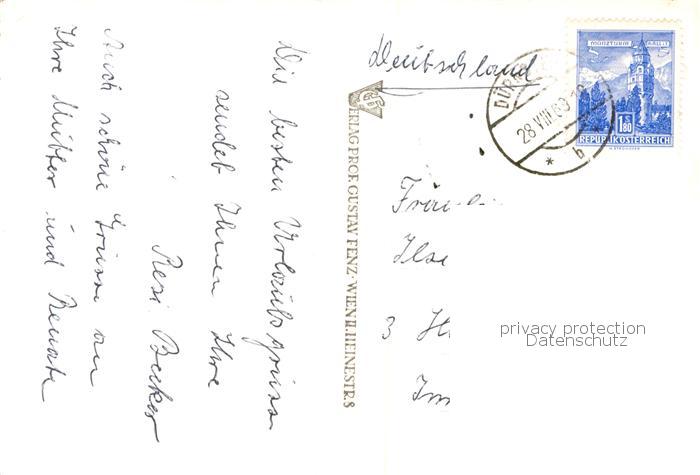 Die besten Urlaubsgrüsse
sendet Ihnen Ihre
Resi Becker
Auch schöne Grüsse an
Ihre Mutter und Renate
Deutschland
VERLAG PROF. GUSTAV FENZ · WIEN II. HEINESTR. 8
MÜNZTURM HALL
S
1.80
REPUBLIK ÖSTERREICH
28 VIII 60
* b *
Ilse
3 H
Im
privacy protection
Datenschutz